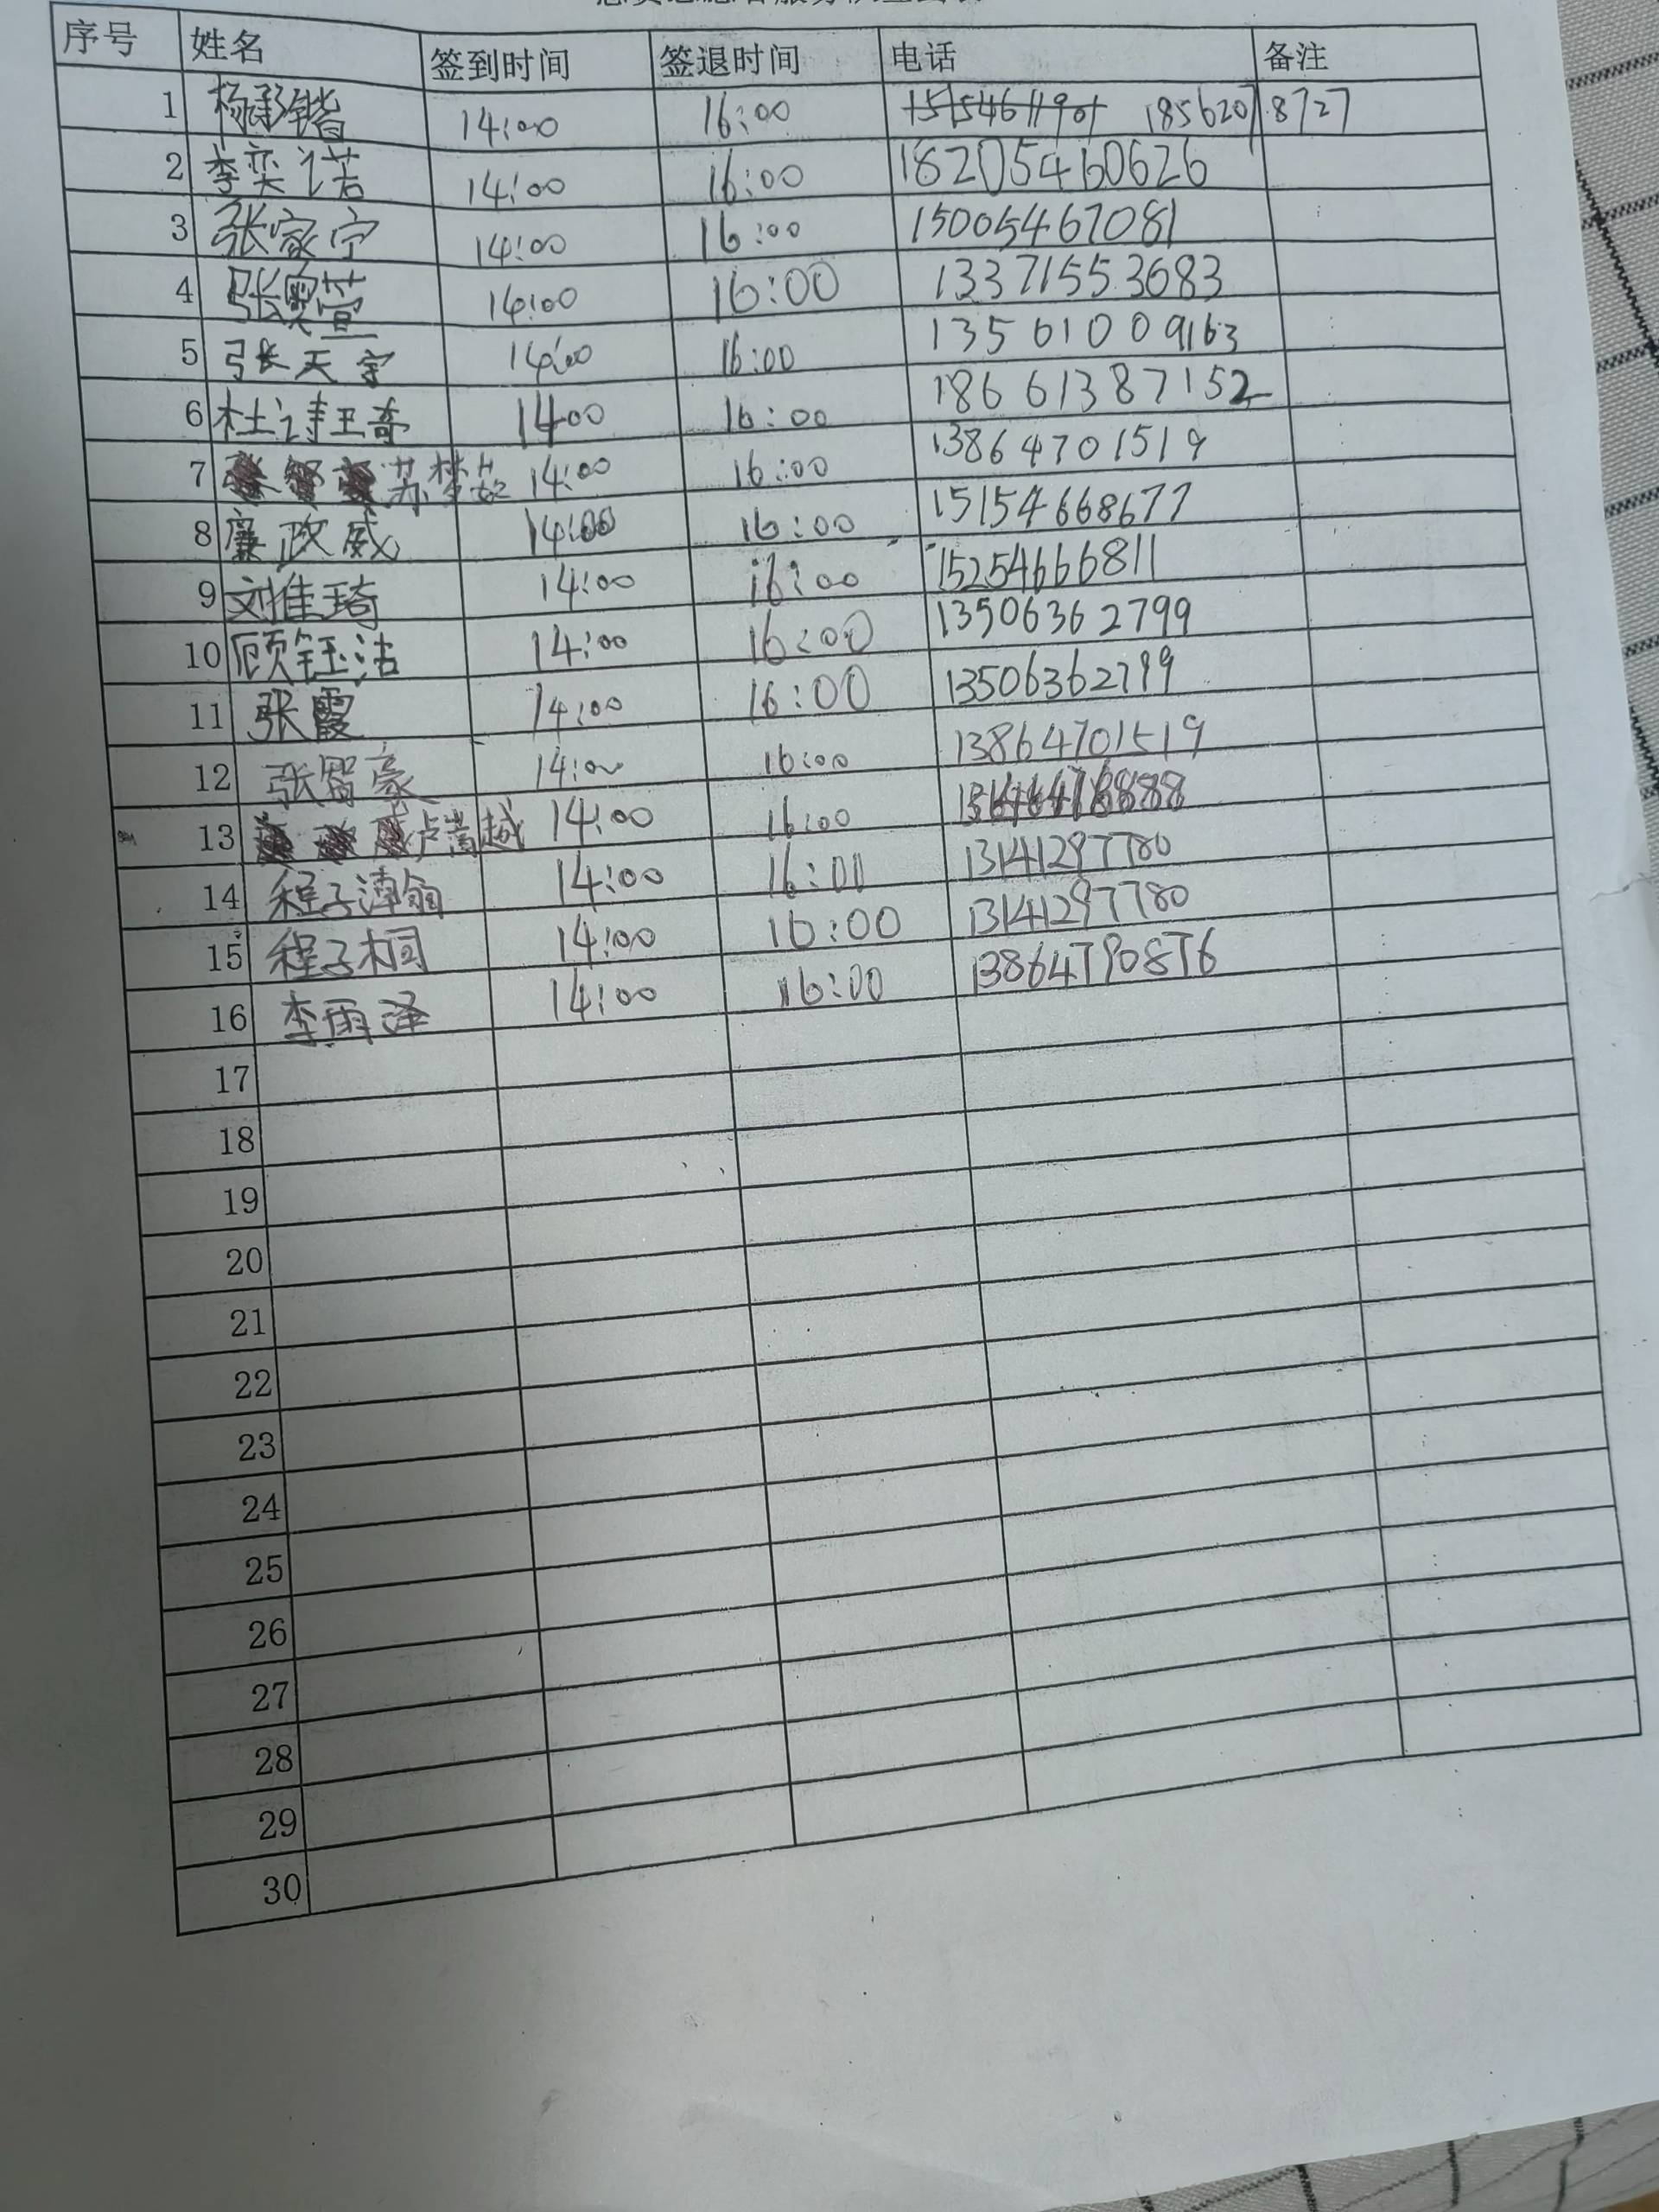 序号 姓名 签到时间 签退时间 电话 备注
1 杨承锴 14:00 16:00 18562078727
2 李奕诺 14:00 16:00 18205460626
3 张家宁 14:00 16:00 15005467081
4 张奥萱 14:00 16:00 13371553683
5 张天宇 14:00 16:00 13561009163
6 杜诗琦 1400 16:00 18661387152
7 苏梦茹 14:00 16:00 13864701519
8 廉政威 14:00 16:00 15154668677
9 刘佳琦 14:00 16:00 15254666811
10 顾钰洁 14:00 16:00 13506362799
11 张霞 14:00 16:00 13506362799
12 张智豪 14:00 16:00 13864701519
13 14:00 16:00
14 程子 14:00 16:00 13141297780
15 程子桐 14:00 16:00 13141297780
16 李雨泽 14:00 16:00 13864790876
17
18
19
20
21
22
23
24
25
26
27
28
29
30